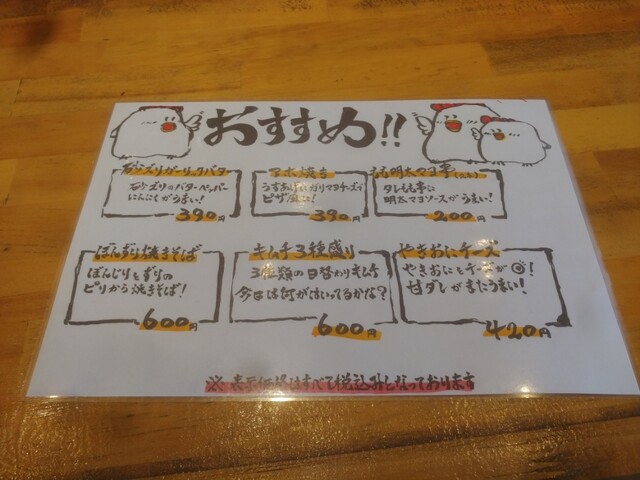 おすすめ!!
砂ズリガーリックバター
砂ズリのバターペッパー
にんにくがうまい!
390円
焼き
うすあげにガリマヨチーズで
ピザ風に!
390円
明太マヨ
タレもも串に
明太マヨソースがうまい!
200円
ぼんずり焼きそば
ぼんじりとずりの
ピリから焼きそば!
600円
キムチ3種盛り
3種類の日替わりキムチ
今日は何が入ってるかな?
600円
やきおにチーズ
やきおにとチーズが◎!
甘ダレがまたうまい!
420円
※表示価格はすべて税込みとなっております